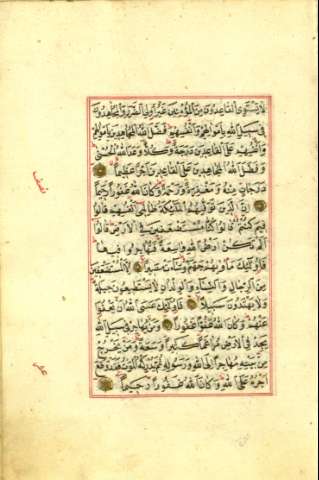 لا يستوي القاعدون من المؤمنين غير أولي الضرر والمجاهدون
في سبيل الله بأموالهم وأنفسهم فضل الله المجاهدين بأموالهم
وأنفسهم على القاعدين درجة وكلا وعد الله الحسنى
وفضل الله المجاهدين على القاعدين أجرا عظيما
درجات منه ومغفرة ورحمة وكان الله غفورا رحيما
إن الذين توفيهم الملئكة ظالمي أنفسهم قالوا
فيم كنتم قالوا كنا مستضعفين في الأرض قالوا
ألم تكن أرض الله واسعة فتهاجروا فيها
فأولئك مأويهم جهنم وساءت مصيرا إلا المستضعفين
من الرجال والنساء والولدان لا يستطيعون حيلة
ولا يهتدون سبيلا فأولئك عسى الله أن يعفو
عنهم وكان الله عفوا غفورا ومن يهاجر في سبيل الله
يجد في الأرض مراغما كثيرا وسعة ومن يخرج
من بيته مهاجرا إلى الله ورسوله ثم يدركه الموت فقد وقع
أجره على الله وكان الله غفورا رحيما